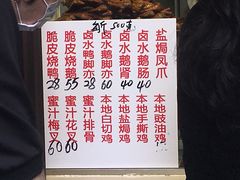 500克
脆皮烧鸭
28
脆皮烧鹅
55
卤水鸭脚亦
28
卤水鹅脚亦
60
卤水鹅肾
40
卤水鹅肠
40
盐焗凤爪
蜜汁梅叉
60
蜜汁花叉
60
蜜汁排骨
本地白切鸡
本地盐焗鸡
本地手撕鸡
本地豉油鸡